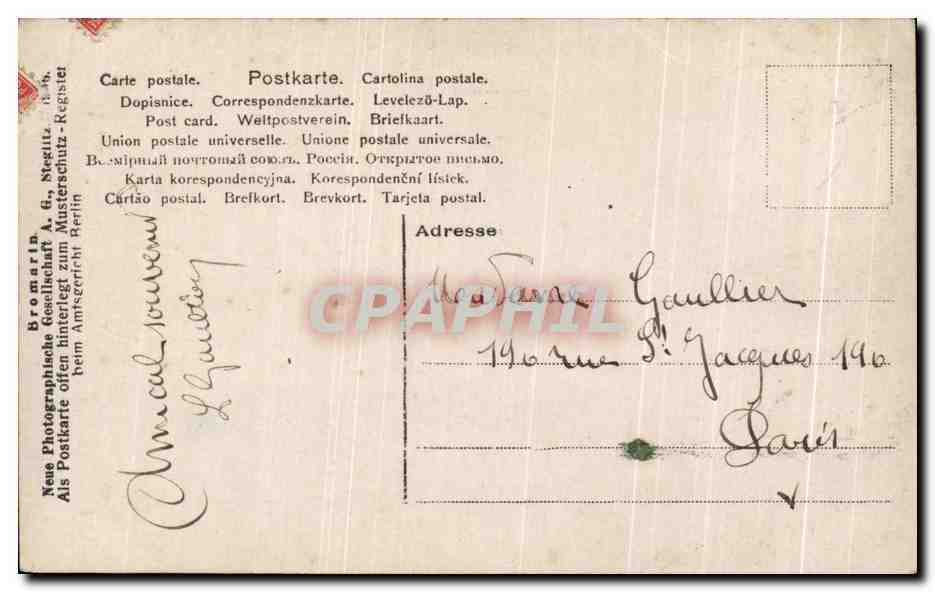 Carte postale. Postkarte. Cartolina postale.
Dopisnice. Correspondenzkarte. Levelezö-Lap.
Post card. Weltpostverein. Briefkaart.
Union postale universelle. Unione postale universale.
Всемірный почтовый союзъ. Россія. Открытое письмо.
Karta korespondencyjna. Korespondenční lístek.
Cartão postal. Brefkort. Brevkort. Tarjeta postal.
Bromarin.
Neue Photographische Gesellschaft A. G., Steglitz.
Als Postkarte offen hinterlegt zum Musterschutz-Register
beim Amtsgericht Berlin
Amical souvenir
Adresse
Madame Gaullier
196 rue St Jacques 196
Paris
CPAPHIL